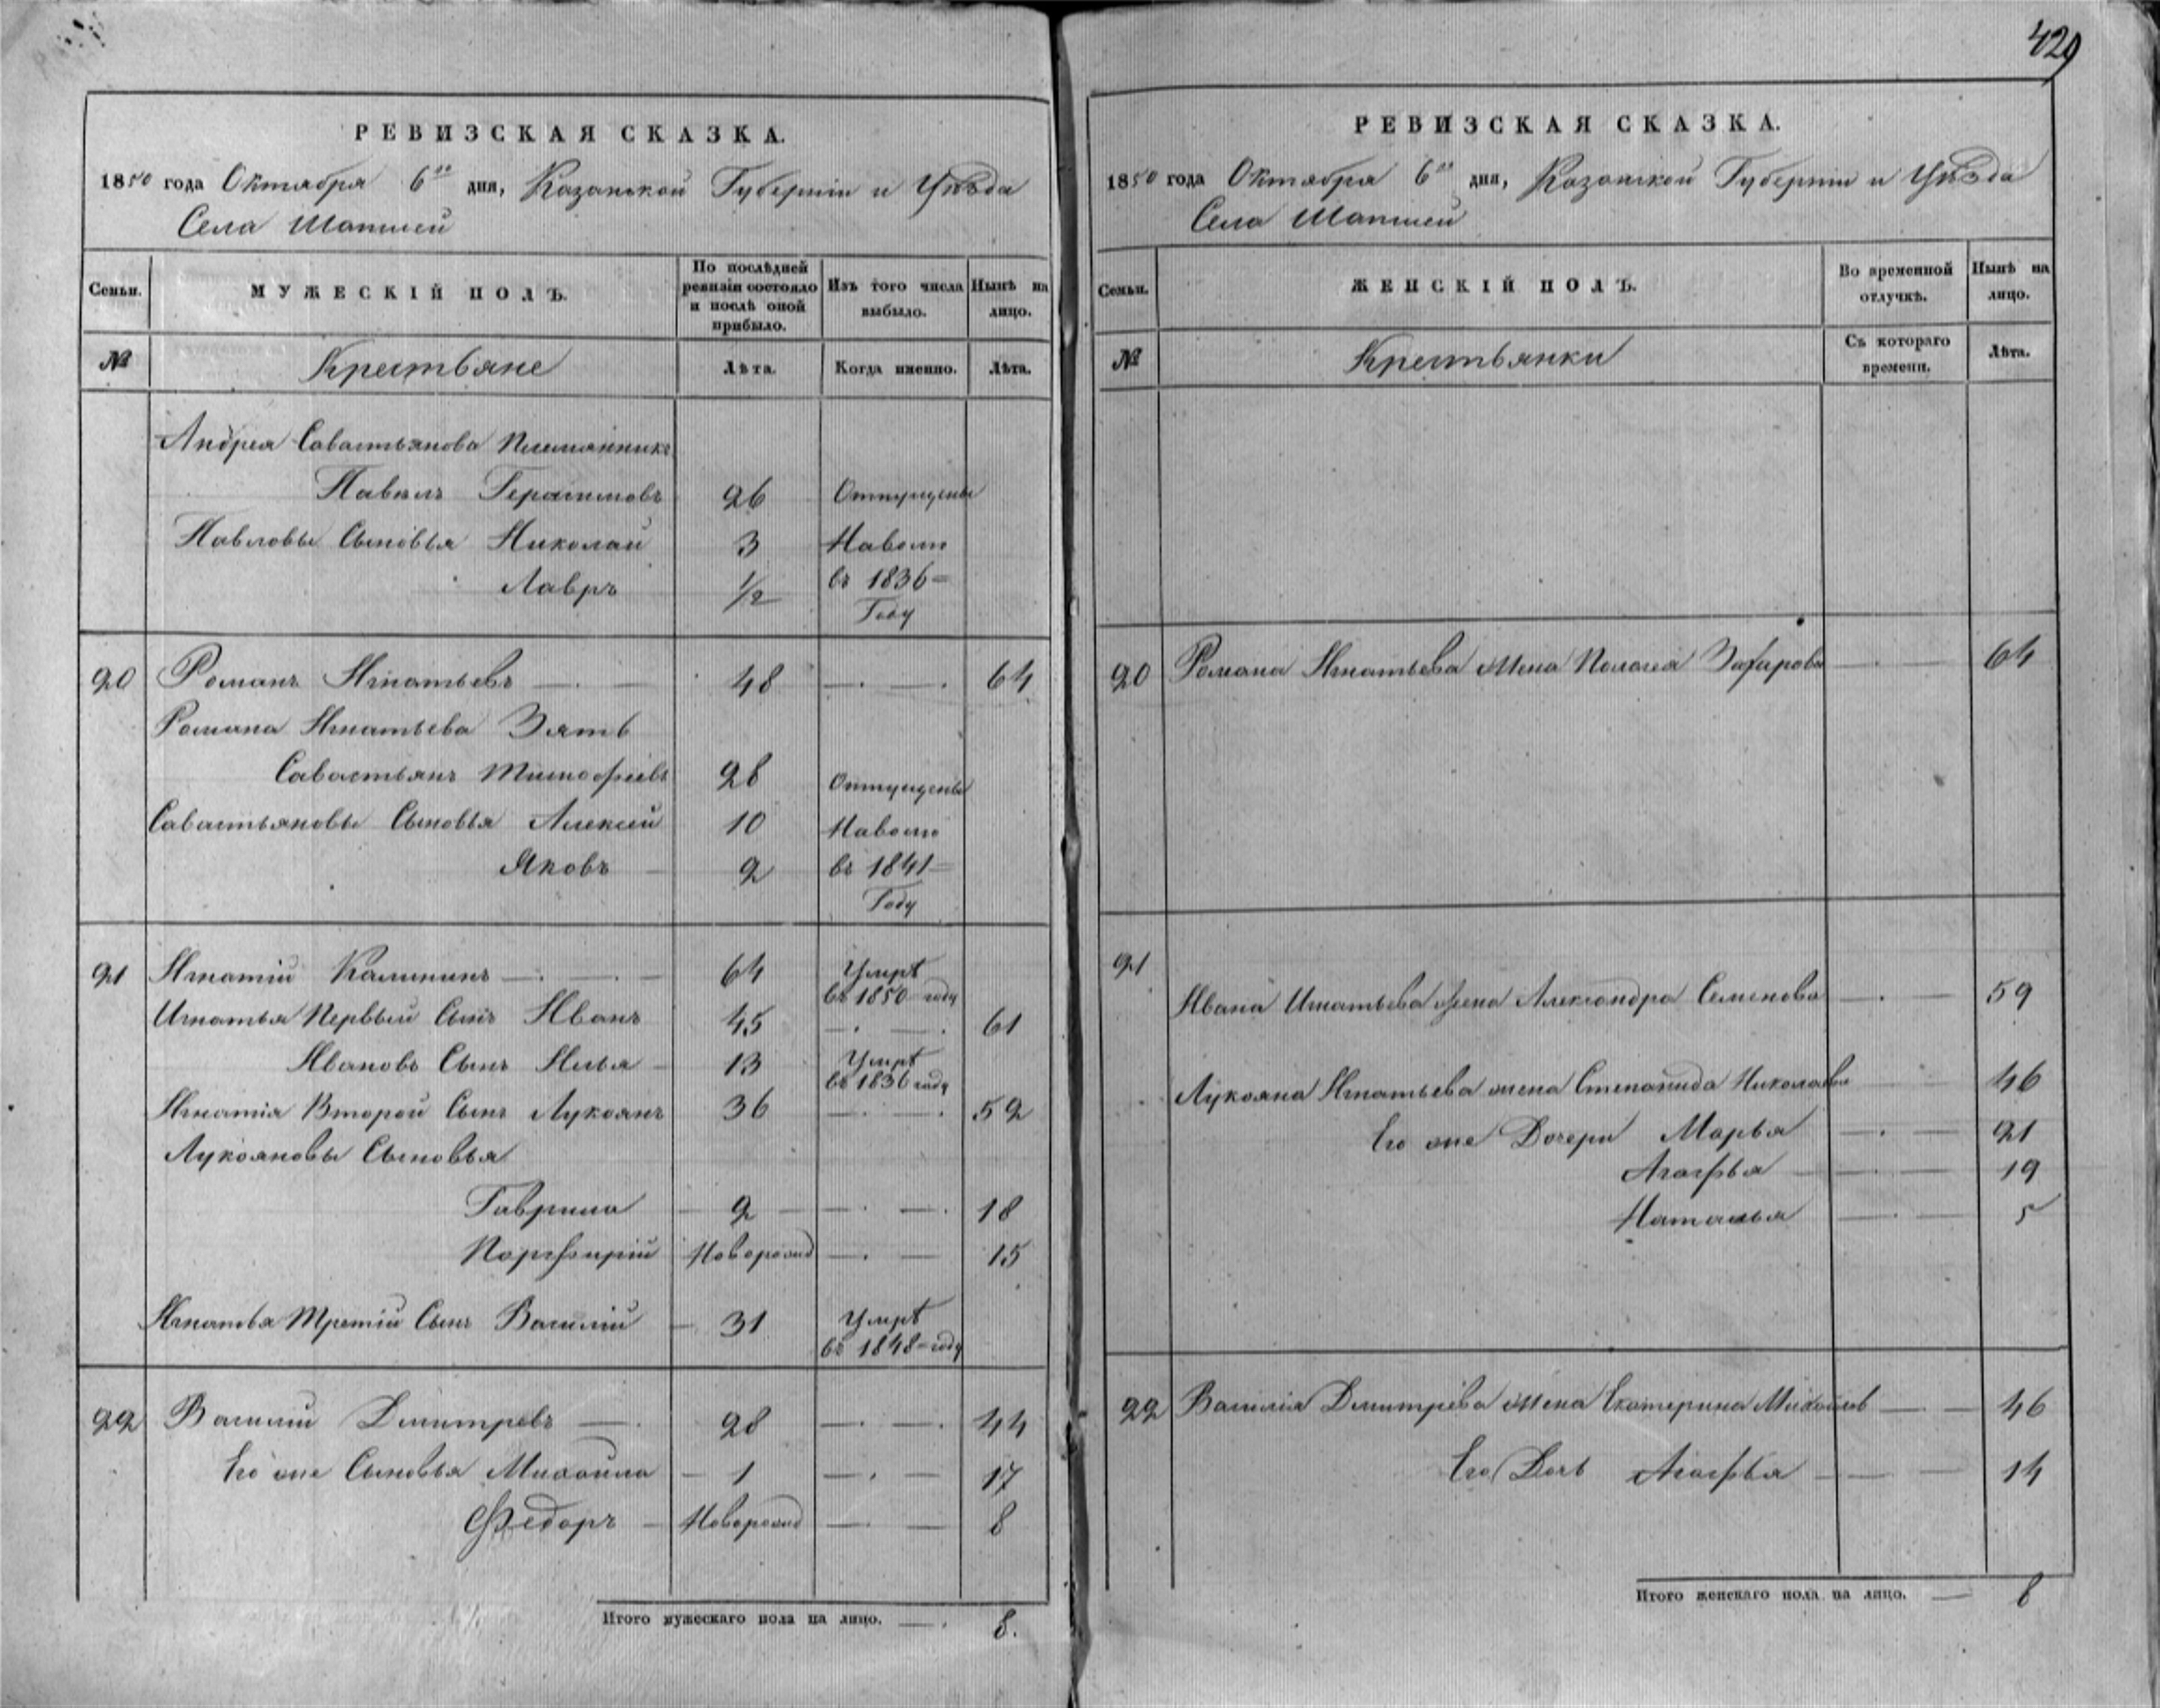 429
РЕВИЗСКАЯ СКАЗКА.
1850 года Октября 6го дня, Казанской Губерніи и Уѣзда
Села Шапшей
Семьи.
МУЖЕСКІЙ ПОЛЪ.
По послѣдней
ревизіи состояло
и послѣ оной
прибыло.
Изъ того числа
выбыло.
Нынѣ на
лицо.
№
Крестьяне
Лѣта.
Когда именно.
Лѣта.
Андрея Савастьянова Племянникъ
Павелъ Герасимовъ 26 Отпущены
Павловы Сыновья Николай 3 Наволю
Лавръ 1/2 въ 1836=
Году
20 Романъ Игнатьевъ — . — 48 — . — . 64
Романа Игнатьева Зять
Савастьянъ Тимофеевъ 28 Отпущены
Савастьяновы Сыновья Алексей 10 Наволю
Яковъ — 2 въ 1841=
Году
21 Игнатій Калининъ — . — . — 64 Умрѣ
въ 1850=году
Игнатья Первый Сынъ Иванъ 45 — . — . 61
Ивановъ Сынъ Илья — 13 Умрѣ
въ 1836 году
Игнатія Второй Сынъ Лукоянъ 36 — . — . 52
Лукояновы Сыновья
Гаврила — 2 — — . — . 18
Порфирій Новорожд — . — 15
Игнатья Третій Сынъ Василій — 31 Умрѣ
въ 1848=году
22 Василій Дмитревъ — . 28 — . — . 44
Его же Сыновья Михайла — 1 — . — 17
Федоръ — Новорожд — . — 8
Итого мужескаго пола на лицо. — . 8.
РЕВИЗСКАЯ СКАЗКА.
1850 года Октября 6го дня, Казанской Губерніи и Уѣзда
Села Шапшей
Семьи.
ЖЕНСКІЙ ПОЛЪ.
Во временной
отлучкѣ.
Нынѣ на
лицо.
№
Крестьянки
Съ котораго
времени.
Лѣта.
20 Романа Игнатьева Жена Пологея Захарова — . — 64
21
Ивана Игнатьева Жена Александра Семенова — . — 59
Лукояна Игнатьева жена Степанида Николаева — 46
Его же Дочери Марья — . — 21
Агафья — . — 19
Наталья — . — 5
22 Василия Дмитріева Жена Екатерина Михайлов — . — 46
Его Дочь Агафья — — — 14
Итого женскаго пола на лицо. — 8